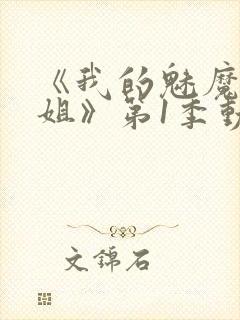 《我的魅魔
姐》第1季動
文錦石